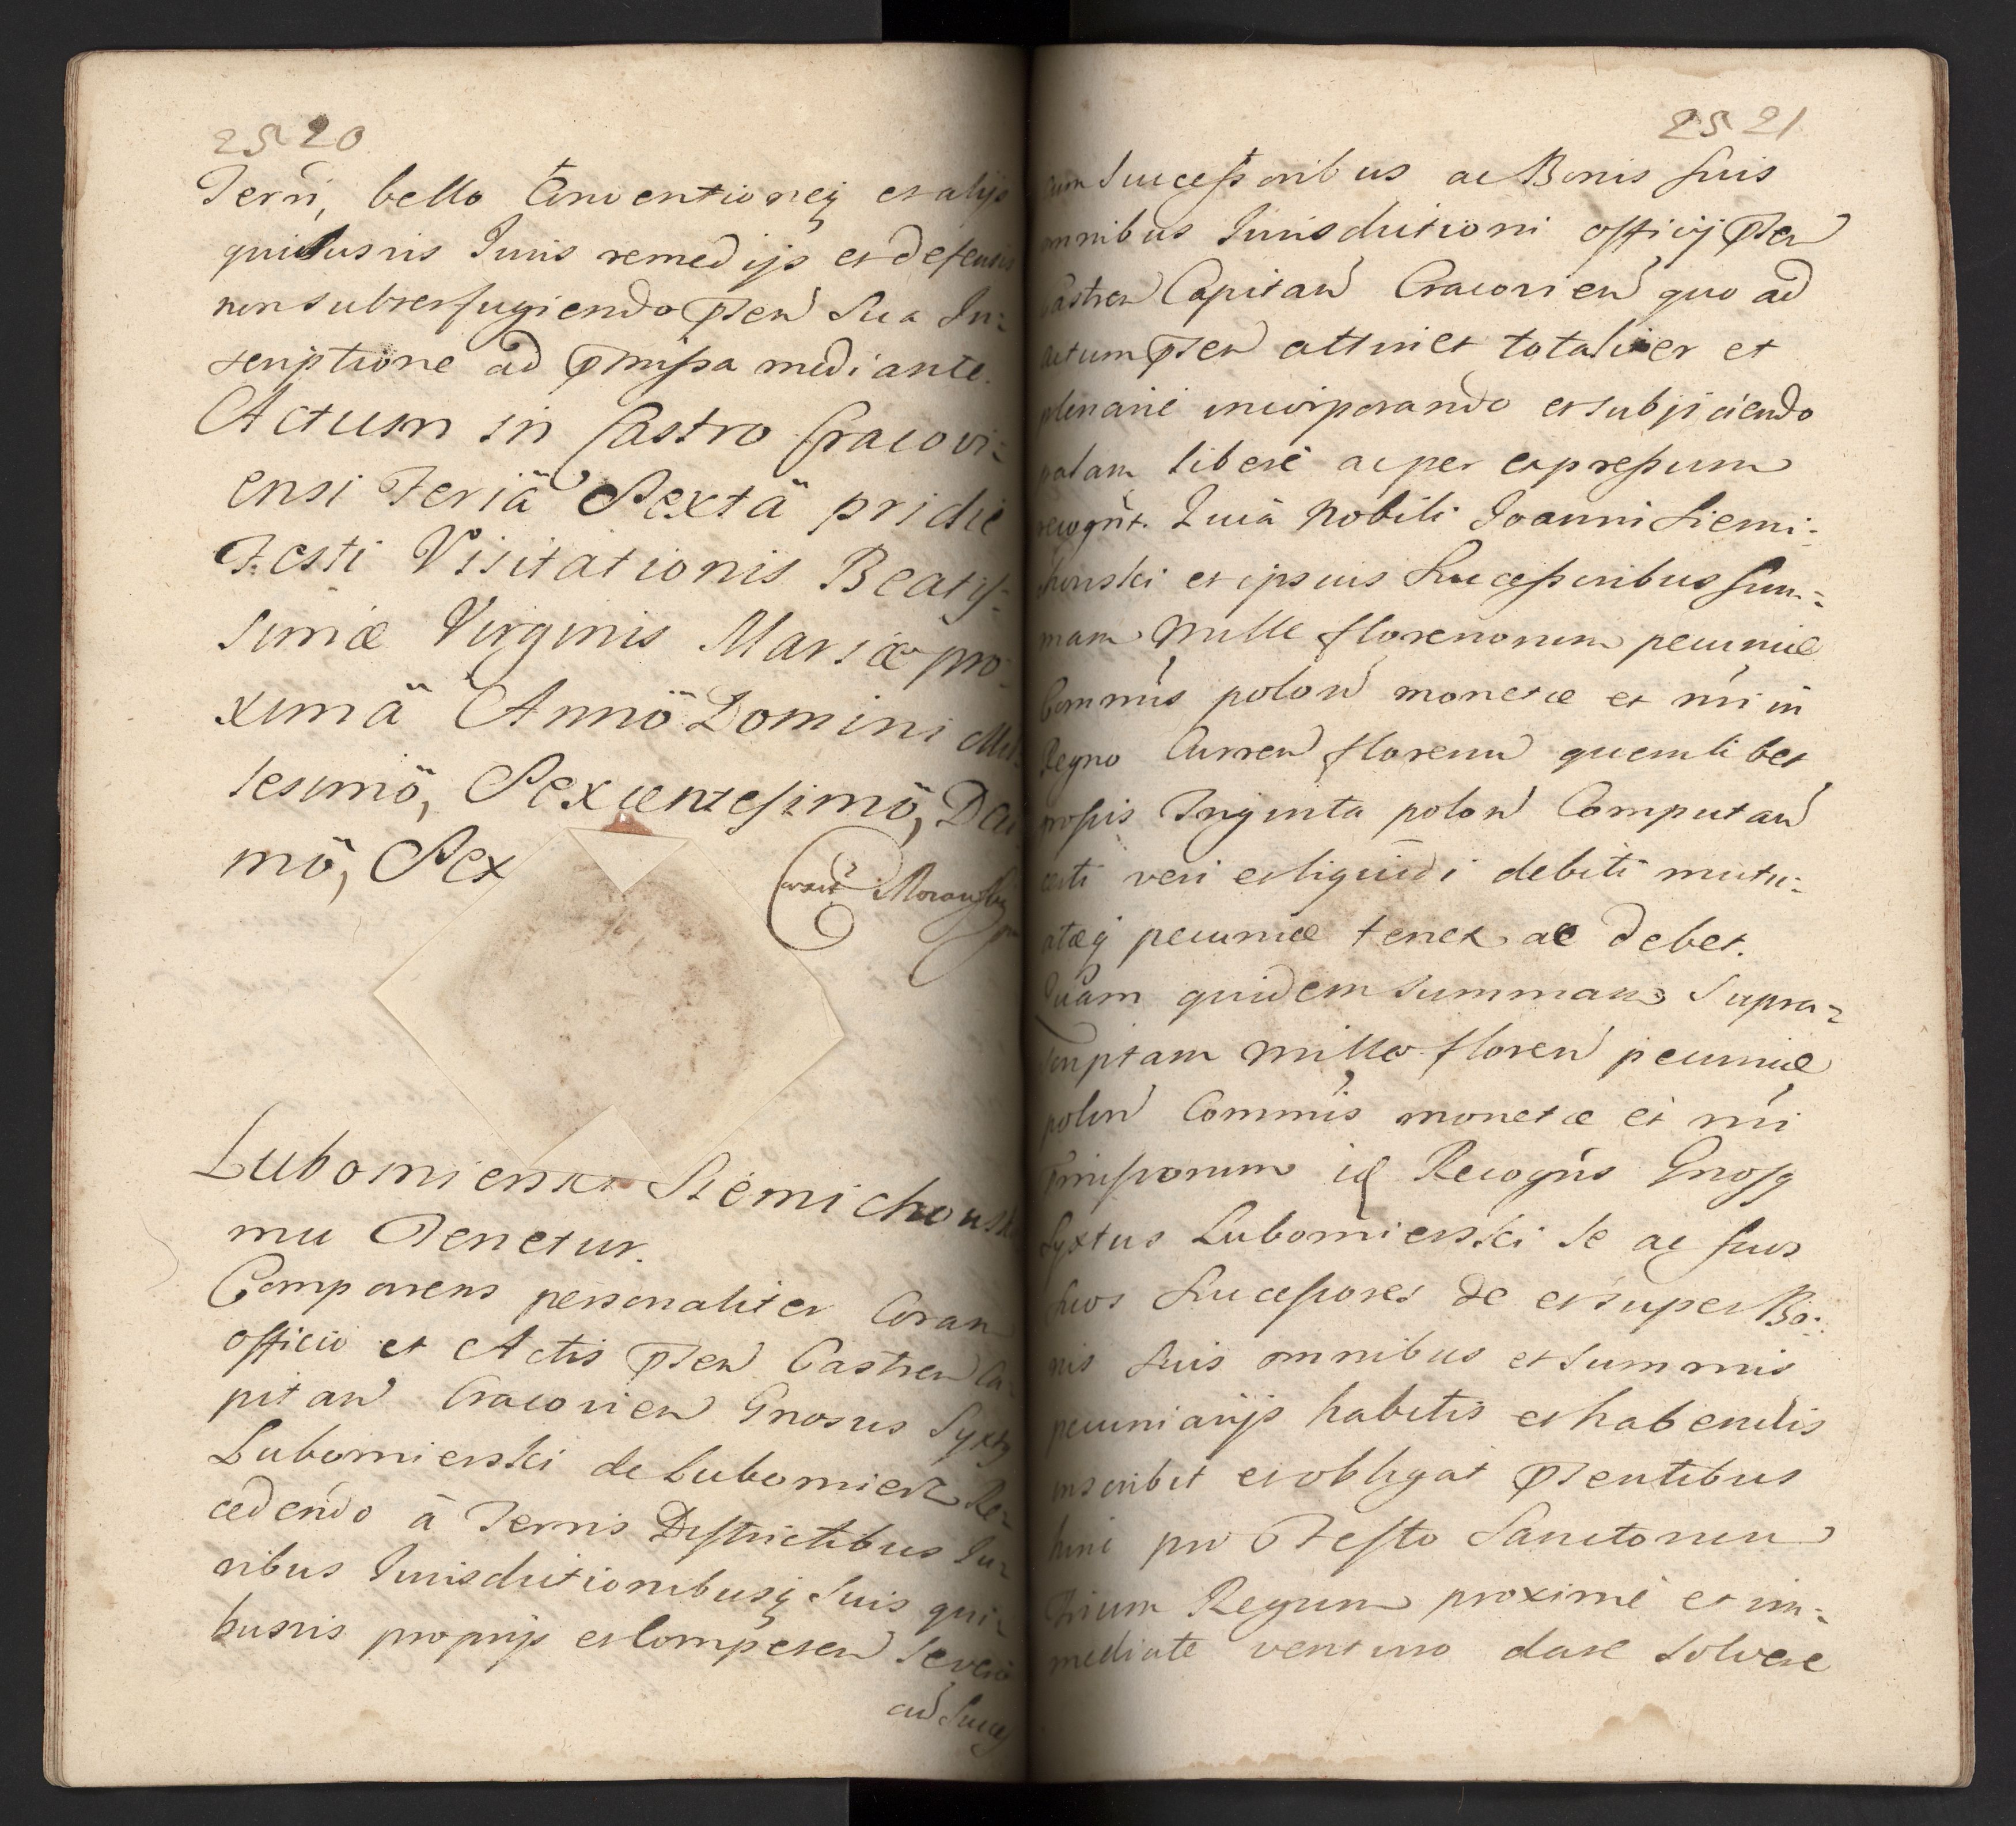 2520
Terrū, bello Conventioneq et alijs
quibusvis Juris remedijs et defensis
non subterfugiendo pten Sua In=
scriptione ad pmissa mediante.
Actum in Castro Cracovi=
ensi Feriä Sextä pridie
Festi Visitationis Beatis=
simæ Virginis Mariæ pro=
ximä Annö Domini Mil=
lesimö, Sexcentesimö, Deci
mö, Sex
Moraws
Lubomierski Siemichows
mu Tenetur.
Comparens personaliter Coram
officio et Actis pten Castren Ca=
pitan Cracovien Gnosus Syxtq
Lubomierski de Lubomierz Re=
cedendo à Terris Districtibus Ju=
ribus Jurisdictionibusq Suis qui=
busvis proprijs et Competen Seque
ad Succes
2521
cum Successoribus ac Bonis suis
omnibus Jurisdictioni officij pten
Castren Capitan Cracovien quo ad
actum pten attinet totaliter et
plenarie incorporando et subijciendo
palam libere ac per expressum
recognt. Quia Nobili Joanni Siemi=
chowski et ipsius Successoribus sum=
mam Mille florenorum pecuniæ
Commis polon monetæ et nri in
Regno Curren florenu quemlibet
grossis Triginta polon Computan
certi veri et liquidi debiti mutu=
atæq pecuniæ tenet ac debet.
Quam quidem summam Supra=
scriptam Mille floren pecuniæ
polon Commis monetæ et nri
pmissorum id Recogns Gnosq
Syxtus Lubomierski se ac suos
suos Successores de et super Bo=
nis suis omnibus et summis
pecuniarijs habitis et habendis
inscribit et obligat ptentibus
hinc pro Festo Sanctorum
Trium Regum proxime et im=
mediate venturo dare solvere